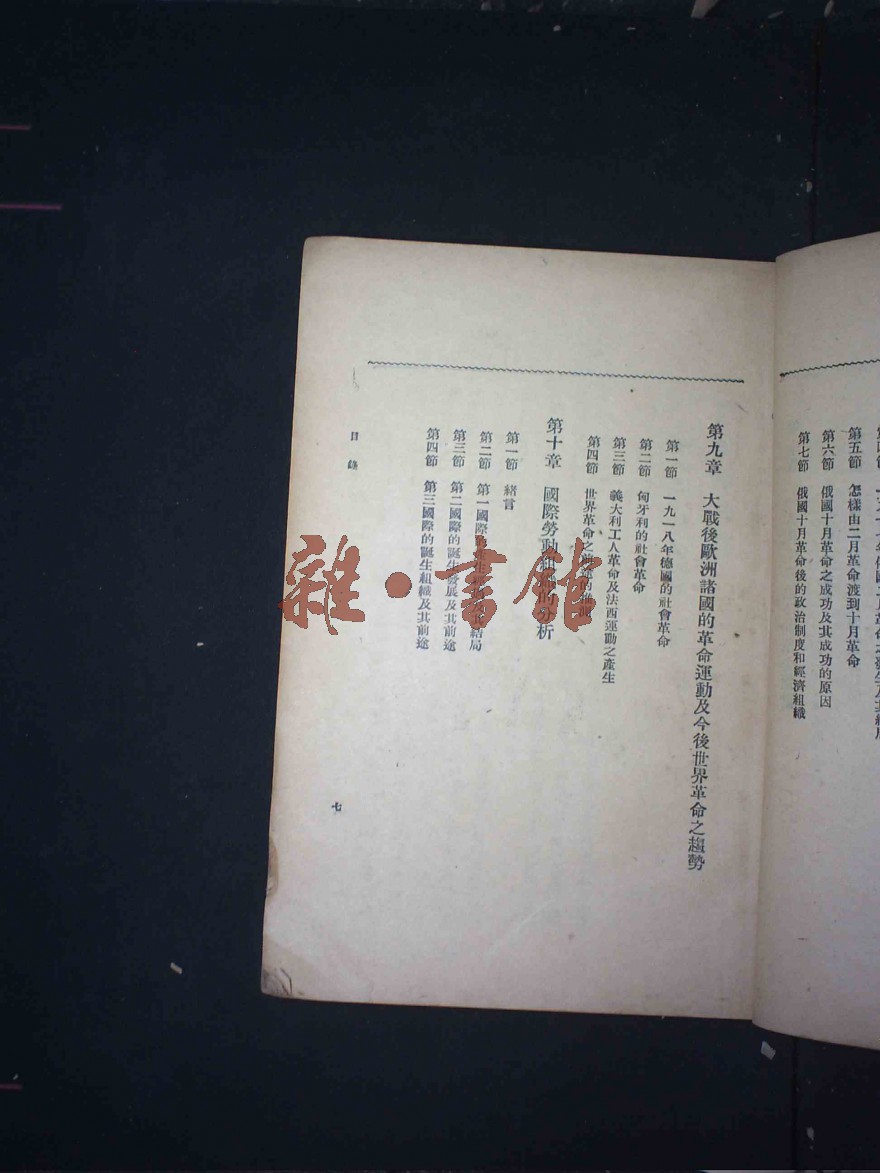 第五節　怎樣由二月革命渡到十月革命
第六節　俄國十月革命之成功及其成功的原因
第七節　俄國十月革命後的政治制度和經濟組織
第九章　大戰後歐洲諸國的革命運動及今後世界革命之趨勢
第一節　一九一八年德國的社會革命
第二節　匈牙利的社會革命
第三節　義大利工人革命及法西運動之產生
第四節　世界革命之
第十章　國際勞動組織的分析
第一節　緒言
第二節　第一國際　產生　結局
第三節　第二國際的誕生發展及其前途
第四節　第三國際的誕生組織及其前途
目錄
七
雜·書館